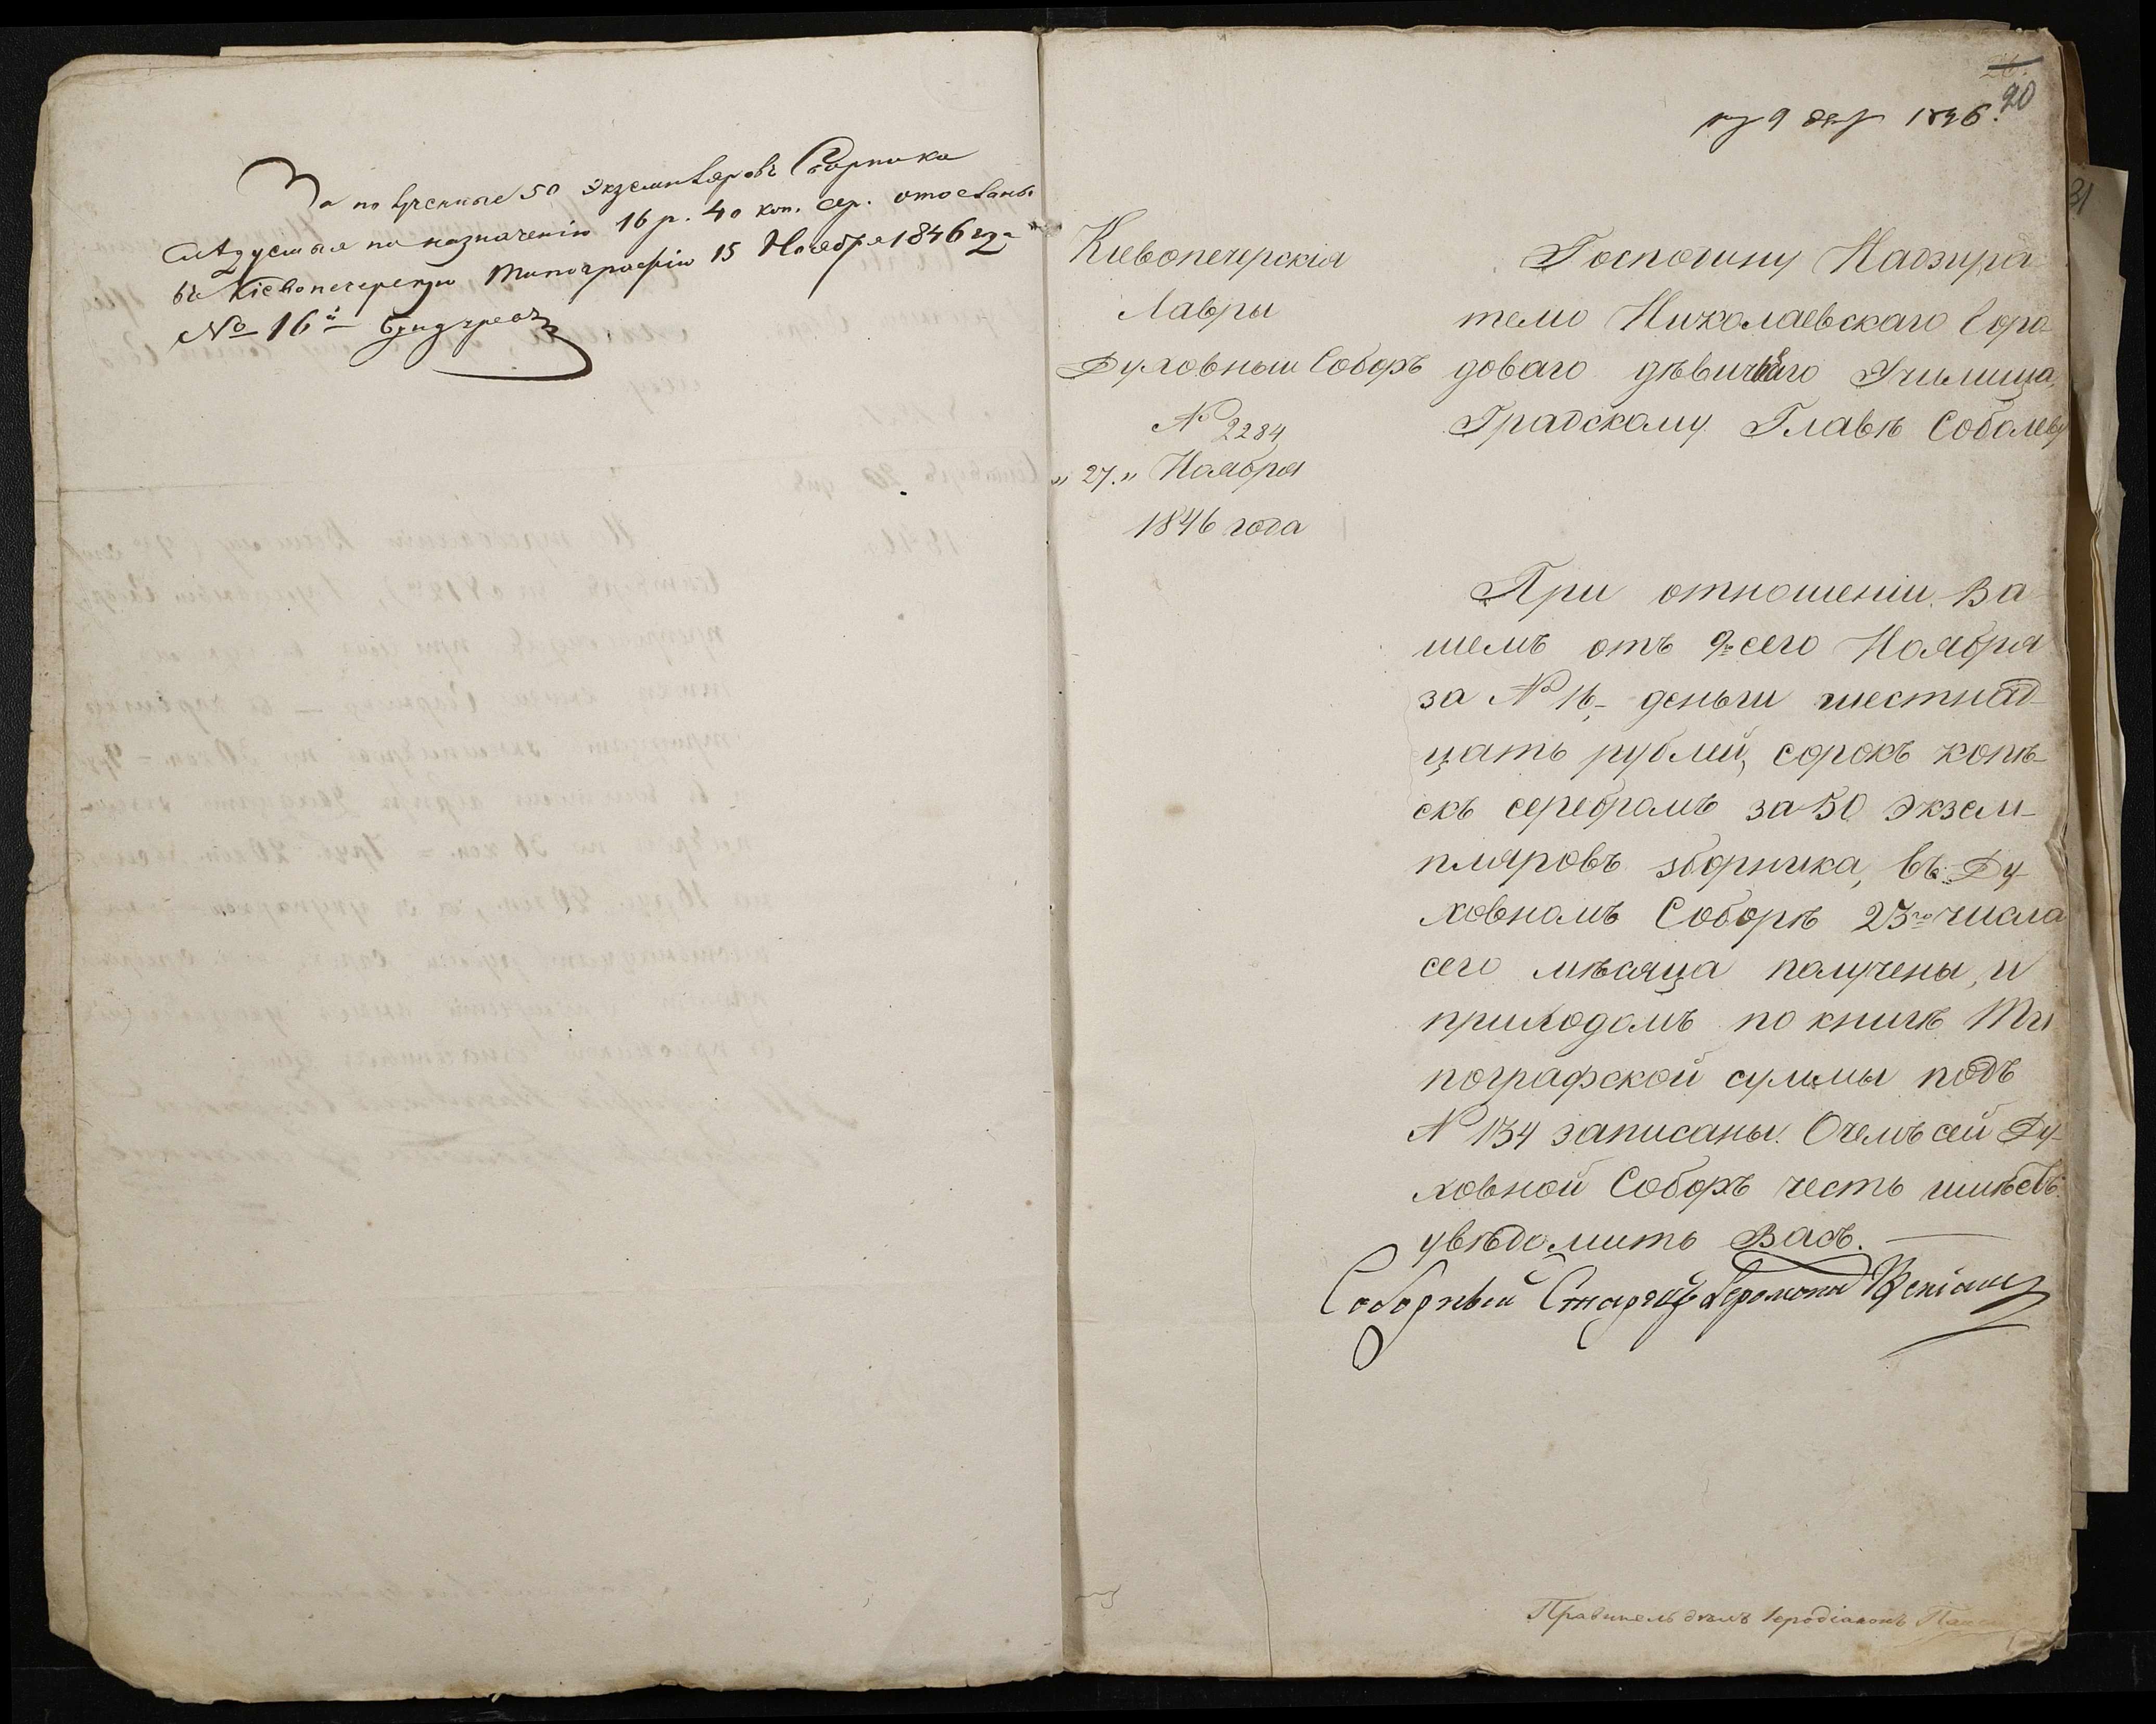 За полученные 50 Экземпляровъ Сборника
слѣдуемыя по назначенію 16 р. 40 коп. сер. отосланы
въ Кіевопечерскую Типографію 15 Ноября 1846 года
№ 16й
20
9 дек 1846.
31
Кіевопечерскія
Лавры
Духовный Соборъ
№ 2284
„27.„ Ноября
1846 года
Господину Надзира
телю Николаевскаго Горо
доваго дѣвичьяго Училища,
Градскому Главѣ Соболеву
При отношеніи Ва
шемъ отъ 9го сего Ноября
за № 16, деньги шестнад-
цать рублей, сорокъ копѣ-
екъ серебромъ за 50 Экзем-
пляровъ зборника, въ Ду-
ховномъ Соборѣ 23го числа
сего мѣсяца получены, и
приходомъ по книгѣ Ти
пографской суммы подъ
№ 134 записаны. О чемъ сей Ду-
ховной Соборъ честь имѣетъ
увѣдомить Васъ.
Соборный Старецъ Іеромонах
Правитель дѣлъ Іеродіаконъ